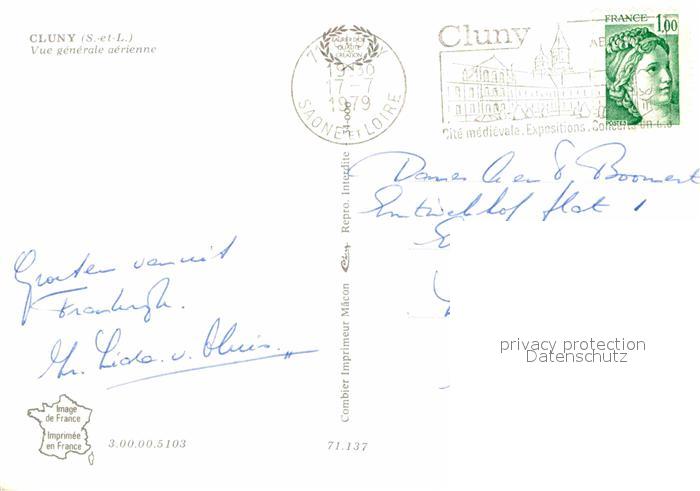 CLUNY (S.-et-L.)
Vue générale aérienne
71 CLUNY
19-30
17-7
1979
SAONE ET LOIRE
LABEUR D'OR
QUALITE
CREATION
Cluny
Cité médiévale. Expositions. Concerts en été
FRANCE
1,00
POSTES
flat 1
Groeten vanuit
Frankrijk.
Lida. v.
Combier Imprimeur Mâcon
Repro. Interdite
34-000
privacy protection
Datenschutz
Image
de France
Imprimée
en France
3.00.00.5103
71.137